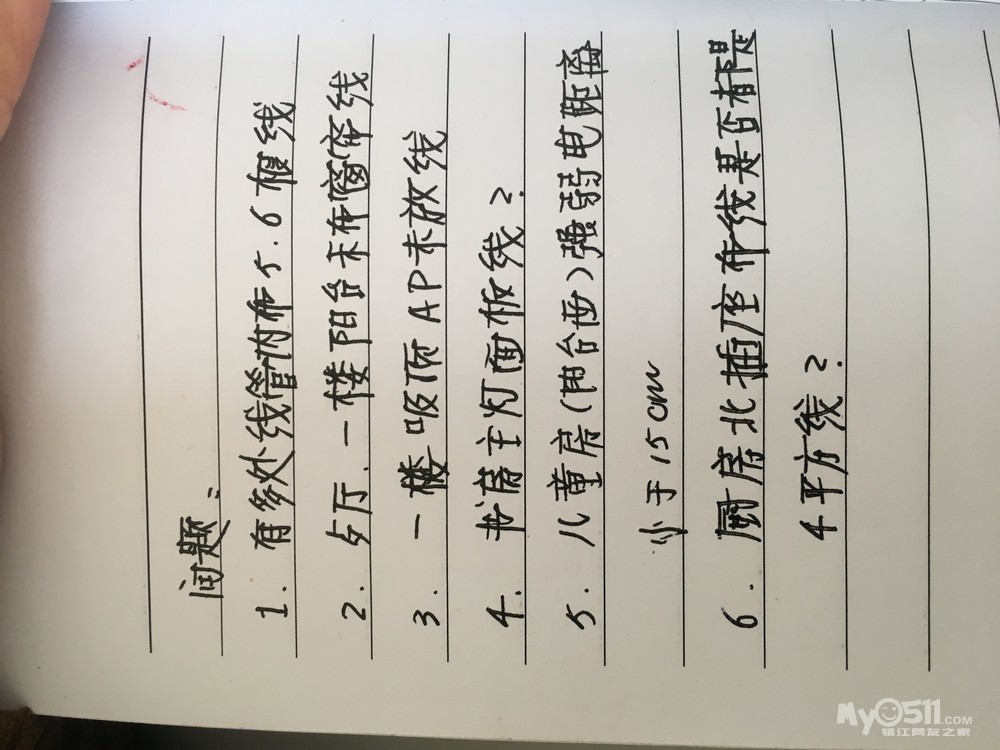 问题:
1. 有多处线管内布5.6根线
2. 歺厅.一楼阳台未布窗帘线
3. 一楼吸顶AP未放线
4. 书房主灯面板线?
5. 儿童房(阳台西)强弱电距离
少于15cm
6. 厨房北插座布线是否都是
4平方线?
MY0511.COM
镇江网友之家